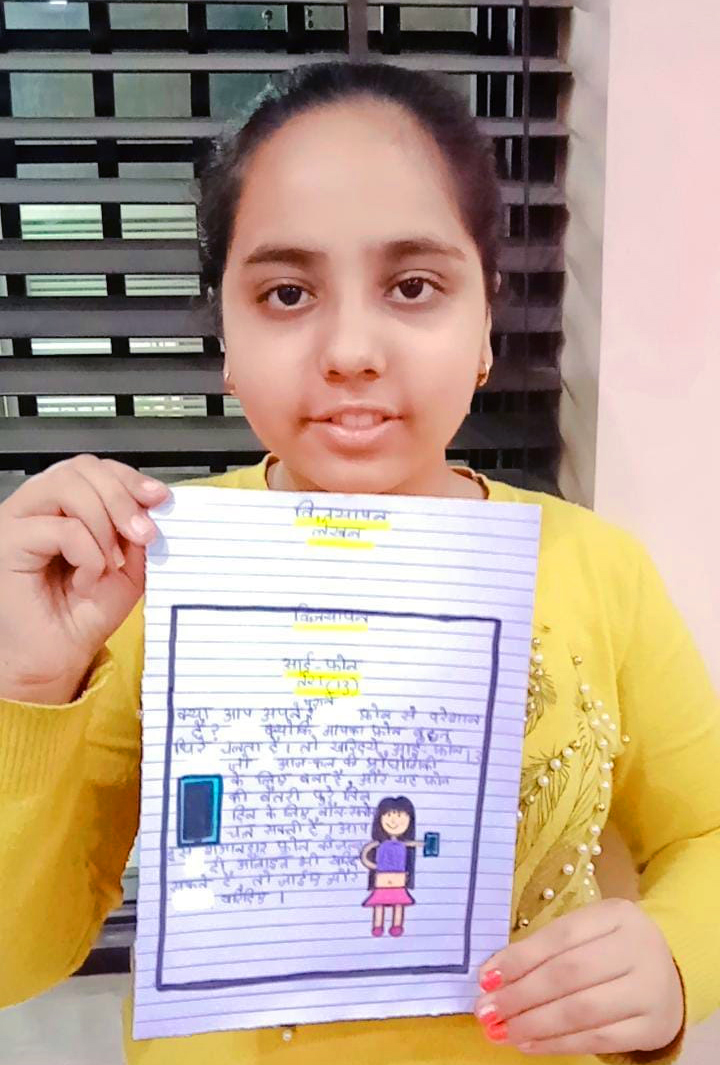 विज्ञापन
लेखन
विज्ञापन
आई-फोन
तेरा (13)
पुराने
क्या आप अपने फोन से परेशान
है? क्योंकि आपका फोन बहुत
धिरे चलता है। तो खरिदीये आई-फोन 13
जो आज-कल के प्रौधोगिकी
के लिए बना है, और यह फोन
की बैटरी पुरे तिन
दिन के लिए
चल सकती है। आप
इस शानदार फोन को
ही ऑनलाइन भी खरिद
सकते है तो जाईए और
खरिदिए ।